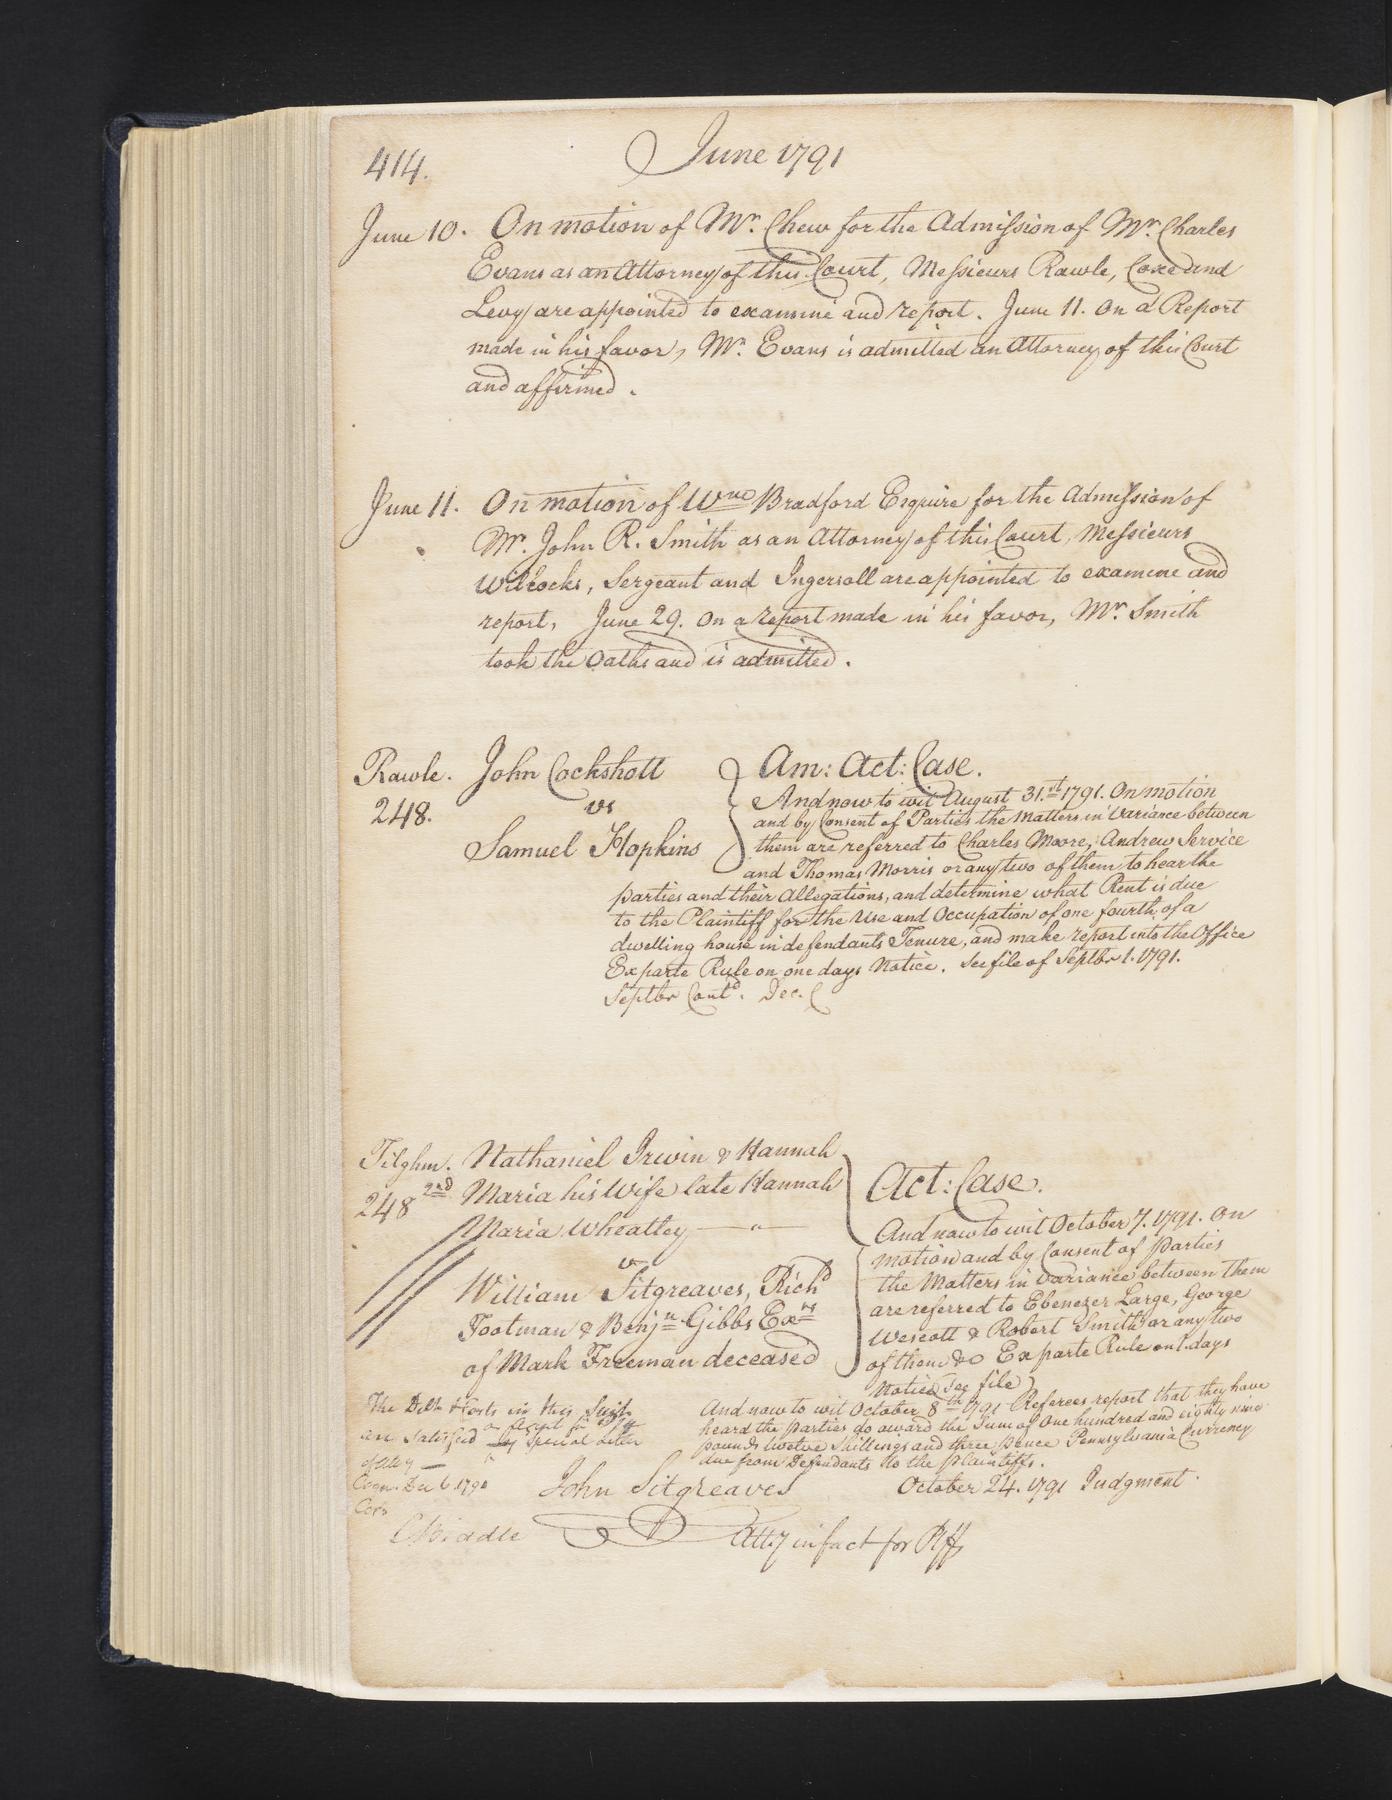 414.
June 1791
June 10. On motion of Mr. Chew for the Admission of Mr. Charles
Evans as an Attorney of this Court, Messieurs Rawle, Coxe and
Levy are appointed to examine and report. June 11. On a Report
made in his favor, Mr. Evans is admitted an Attorney of this Court
and affirmed.
June 11. On motion of Wm Bradford Esquire for the Admission of
Mr. John R. Smith as an Attorney of this Court, Messieurs
Wilcocks, Sergeant and Ingersoll are appointed to examine and
report, June 29. On a report made in his favor, Mr. Smith
took the Oaths and is admitted.
Rawle. John Cockshott
248.
vs
Samuel Hopkins
Am: Act: Case.
And now to wit August 31.st 1791. On motion
and by Consent of Parties the Matters in Variance between
them are referred to Charles Moore, Andrew Service
and Thomas Morris or any two of them to hear the
parties and their Allegations, and determine what Rent is due
to the Plaintiff for the Use and Occupation of one fourth of a
dwelling house in defendants Tenure, and make report into the Office
Ex parte Rule on one days Notice. See file of Septbr 1. 1791.
Septbr Contd. Dec. C
Tilghm. Nathaniel Irwin & Hannah
248 2nd Maria his Wife late Hannah
Maria Wheatley
v
William Sitgreaves, Richd
Footman & Benjn Gibbs Exrs
of Mark Freeman deceased
Act: Case.
And now to wit October 7. 1791. On
motion and by Consent of Parties
the Matters in variance between them
are referred to Ebenezer Large, George
Wescott & Robert Smith or any two
of them &c Ex parte Rule on 1. days
Notice (See file)
And now to wit October 8th 1791 Referees report that they have
heard the Parties do award the Sum of One hundred and eighty nine
pounds twelve Shillings and three pence Pennsylvania Currency
due from Defendants to the Plaintiffs.
October 24. 1791 Judgment.
The Debt & Costs in this Suit
are Satisfied
special
John Sitgreaves
Atty in fact for Plff
C Biddle